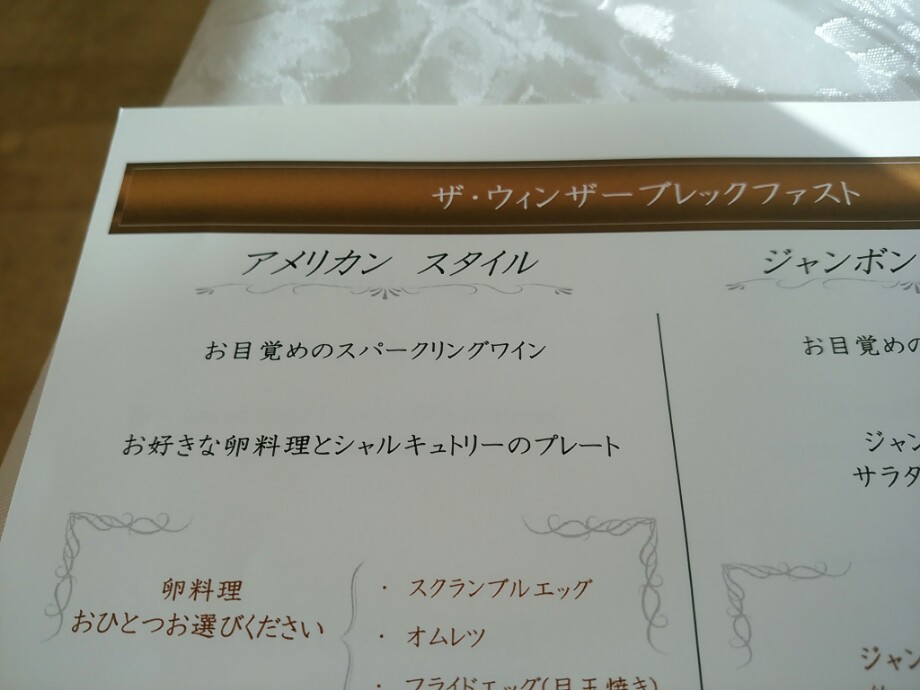 ザ・ウィンザーブレックファスト
アメリカン スタイル
お目覚めのスパークリングワイン
お好きな卵料理とシャルキュトリーのプレート
卵料理
おひとつお選びください
・ スクランブルエッグ
・ オムレツ
・ フライドエッグ(目玉焼き)
ジャンボン
お目覚めの
ジャン
サラダ
ジャン